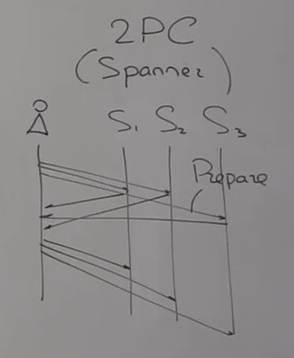 2PC
(Spanner)
S1 S2 S3
Prepare